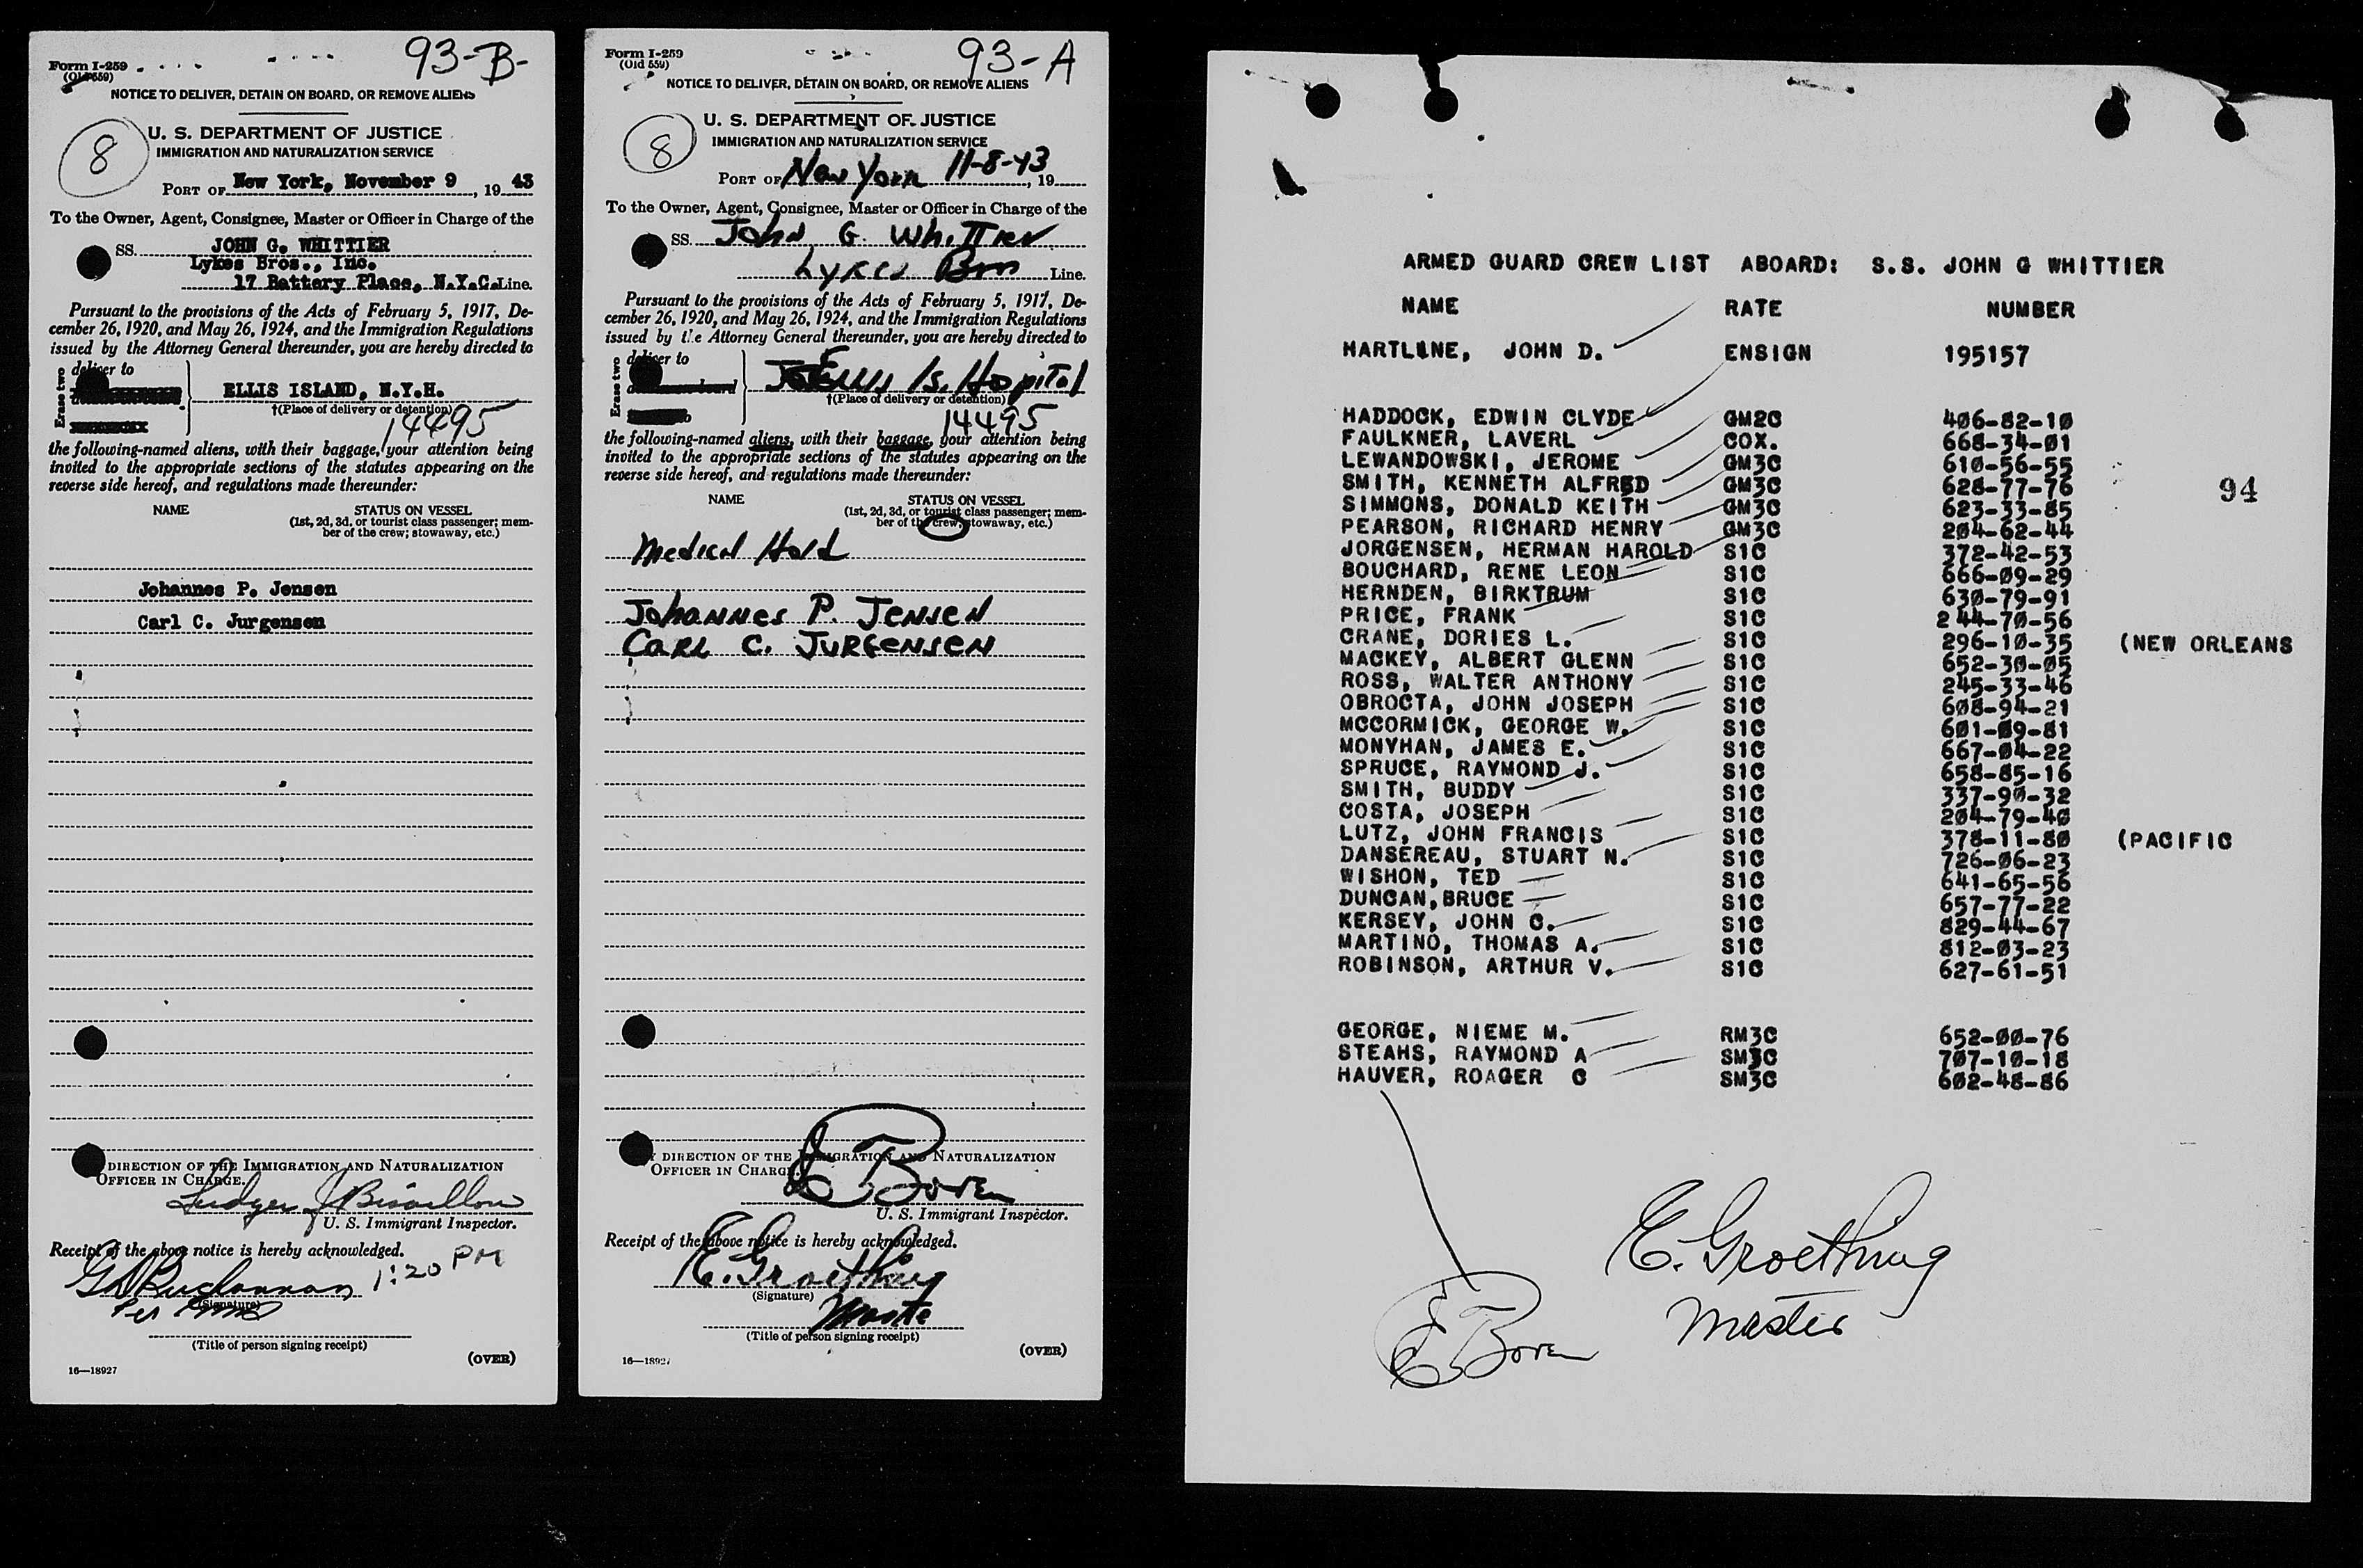 93-B-
Form I-259
(Old 559)
NOTICE TO DELIVER, DETAIN ON BOARD, OR REMOVE ALIENS
8
U. S. DEPARTMENT OF JUSTICE
IMMIGRATION AND NATURALIZATION SERVICE
PORT OF New York, November 9, 19 43
To the Owner, Agent, Consignee, Master or Officer in Charge of the
SS. JOHN G. WHITTIER
Lykes Bros., Inc.
17 Battery Place, N.Y.C. Line.
Pursuant to the provisions of the Acts of February 5, 1917, De-
cember 26, 1920, and May 26, 1924, and the Immigration Regulations
issued by the Attorney General thereunder, you are hereby directed to
Erase two
deliver to
ELLIS ISLAND, N.Y.H.
†(Place of delivery or detention)
14495
the following-named aliens, with their baggage, your attention being
invited to the appropriate sections of the statutes appearing on the
reverse side hereof, and regulations made thereunder:
NAME STATUS ON VESSEL
(1st, 2d, 3d, or tourist class passenger; mem-
ber of the crew; stowaway, etc.)
Johannes P. Jensen
Carl C. Jurgensen
DIRECTION OF THE IMMIGRATION AND NATURALIZATION
OFFICER IN CHARGE.
U. S. Immigrant Inspector.
Receipt of the above notice is hereby acknowledged.
1:20 PM
(Signature)
(Title of person signing receipt)
(OVER)
16—18927
93-A
Form I-259
(Old 559)
NOTICE TO DELIVER, DETAIN ON BOARD, OR REMOVE ALIENS
8
U. S. DEPARTMENT OF JUSTICE
IMMIGRATION AND NATURALIZATION SERVICE
PORT OF New York 11-8-43, 19
To the Owner, Agent, Consignee, Master or Officer in Charge of the
SS. John G. Whittier
Lykes Bros Line.
Pursuant to the provisions of the Acts of February 5, 1917, De-
cember 26, 1920, and May 26, 1924, and the Immigration Regulations
issued by the Attorney General thereunder, you are hereby directed to
Erase two
deliver to
Ellis Is. Hospital
†(Place of delivery or detention)
14495
the following-named aliens, with their baggage, your attention being
invited to the appropriate sections of the statutes appearing on the
reverse side hereof, and regulations made thereunder:
NAME STATUS ON VESSEL
(1st, 2d, 3d, or tourist class passenger; mem-
ber of the crew; stowaway, etc.)
Medical Hold
Johannes P. Jensen
Carl C. Jurgensen
DIRECTION OF THE IMMIGRATION AND NATURALIZATION
OFFICER IN CHARGE.
E Boren
U. S. Immigrant Inspector.
Receipt of the above notice is hereby acknowledged.
(Signature)
Master
(Title of person signing receipt)
(OVER)
16—18927
ARMED GUARD CREW LIST ABOARD: S.S. JOHN G WHITTIER
NAME RATE NUMBER
HARTLINE, JOHN D. ENSIGN 195157
HADDOCK, EDWIN CLYDE GM2C 406-82-10
FAULKNER, LAVERL COX. 668-34-01
LEWANDOWSKI, JEROME GM3C 610-56-55
SMITH, KENNETH ALFRED GM3C 628-77-76
94
SIMMONS, DONALD KEITH GM3C 623-33-85
PEARSON, RICHARD HENRY GM3C 204-62-44
JORGENSEN, HERMAN HAROLD S1C 372-42-53
BOUCHARD, RENE LEON S1C 666-09-29
HERNDEN, BIRKTRUM S1C 630-79-91
PRICE, FRANK S1C 244-70-56
CRANE, DORIES L. S1C 296-10-35 (NEW ORLEANS
MACKEY, ALBERT GLENN S1C 652-30-05
ROSS, WALTER ANTHONY S1C 245-33-46
OBROCTA, JOHN JOSEPH S1C 608-94-21
MCCORMICK, GEORGE W. S1C 601-09-81
MONYHAN, JAMES E. S1C 667-04-22
SPRUCE, RAYMOND J. S1C 658-85-16
SMITH, BUDDY S1C 337-90-32
COSTA, JOSEPH S1C 204-79-40
LUTZ, JOHN FRANCIS S1C 378-11-80 (PACIFIC
DANSEREAU, STUART N. S1C 726-06-23
WISHON, TED S1C 641-65-56
DUNCAN, BRUCE S1C 657-77-22
KERSEY, JOHN C. S1C 829-44-67
MARTINO, THOMAS A. S1C 812-03-23
ROBINSON, ARTHUR V. S1C 627-61-51
GEORGE, NIEME M. RM3C 652-00-76
STEAHS, RAYMOND A SM3C 707-10-18
HAUVER, ROAGER C SM3C 602-48-86
E Boren
Master